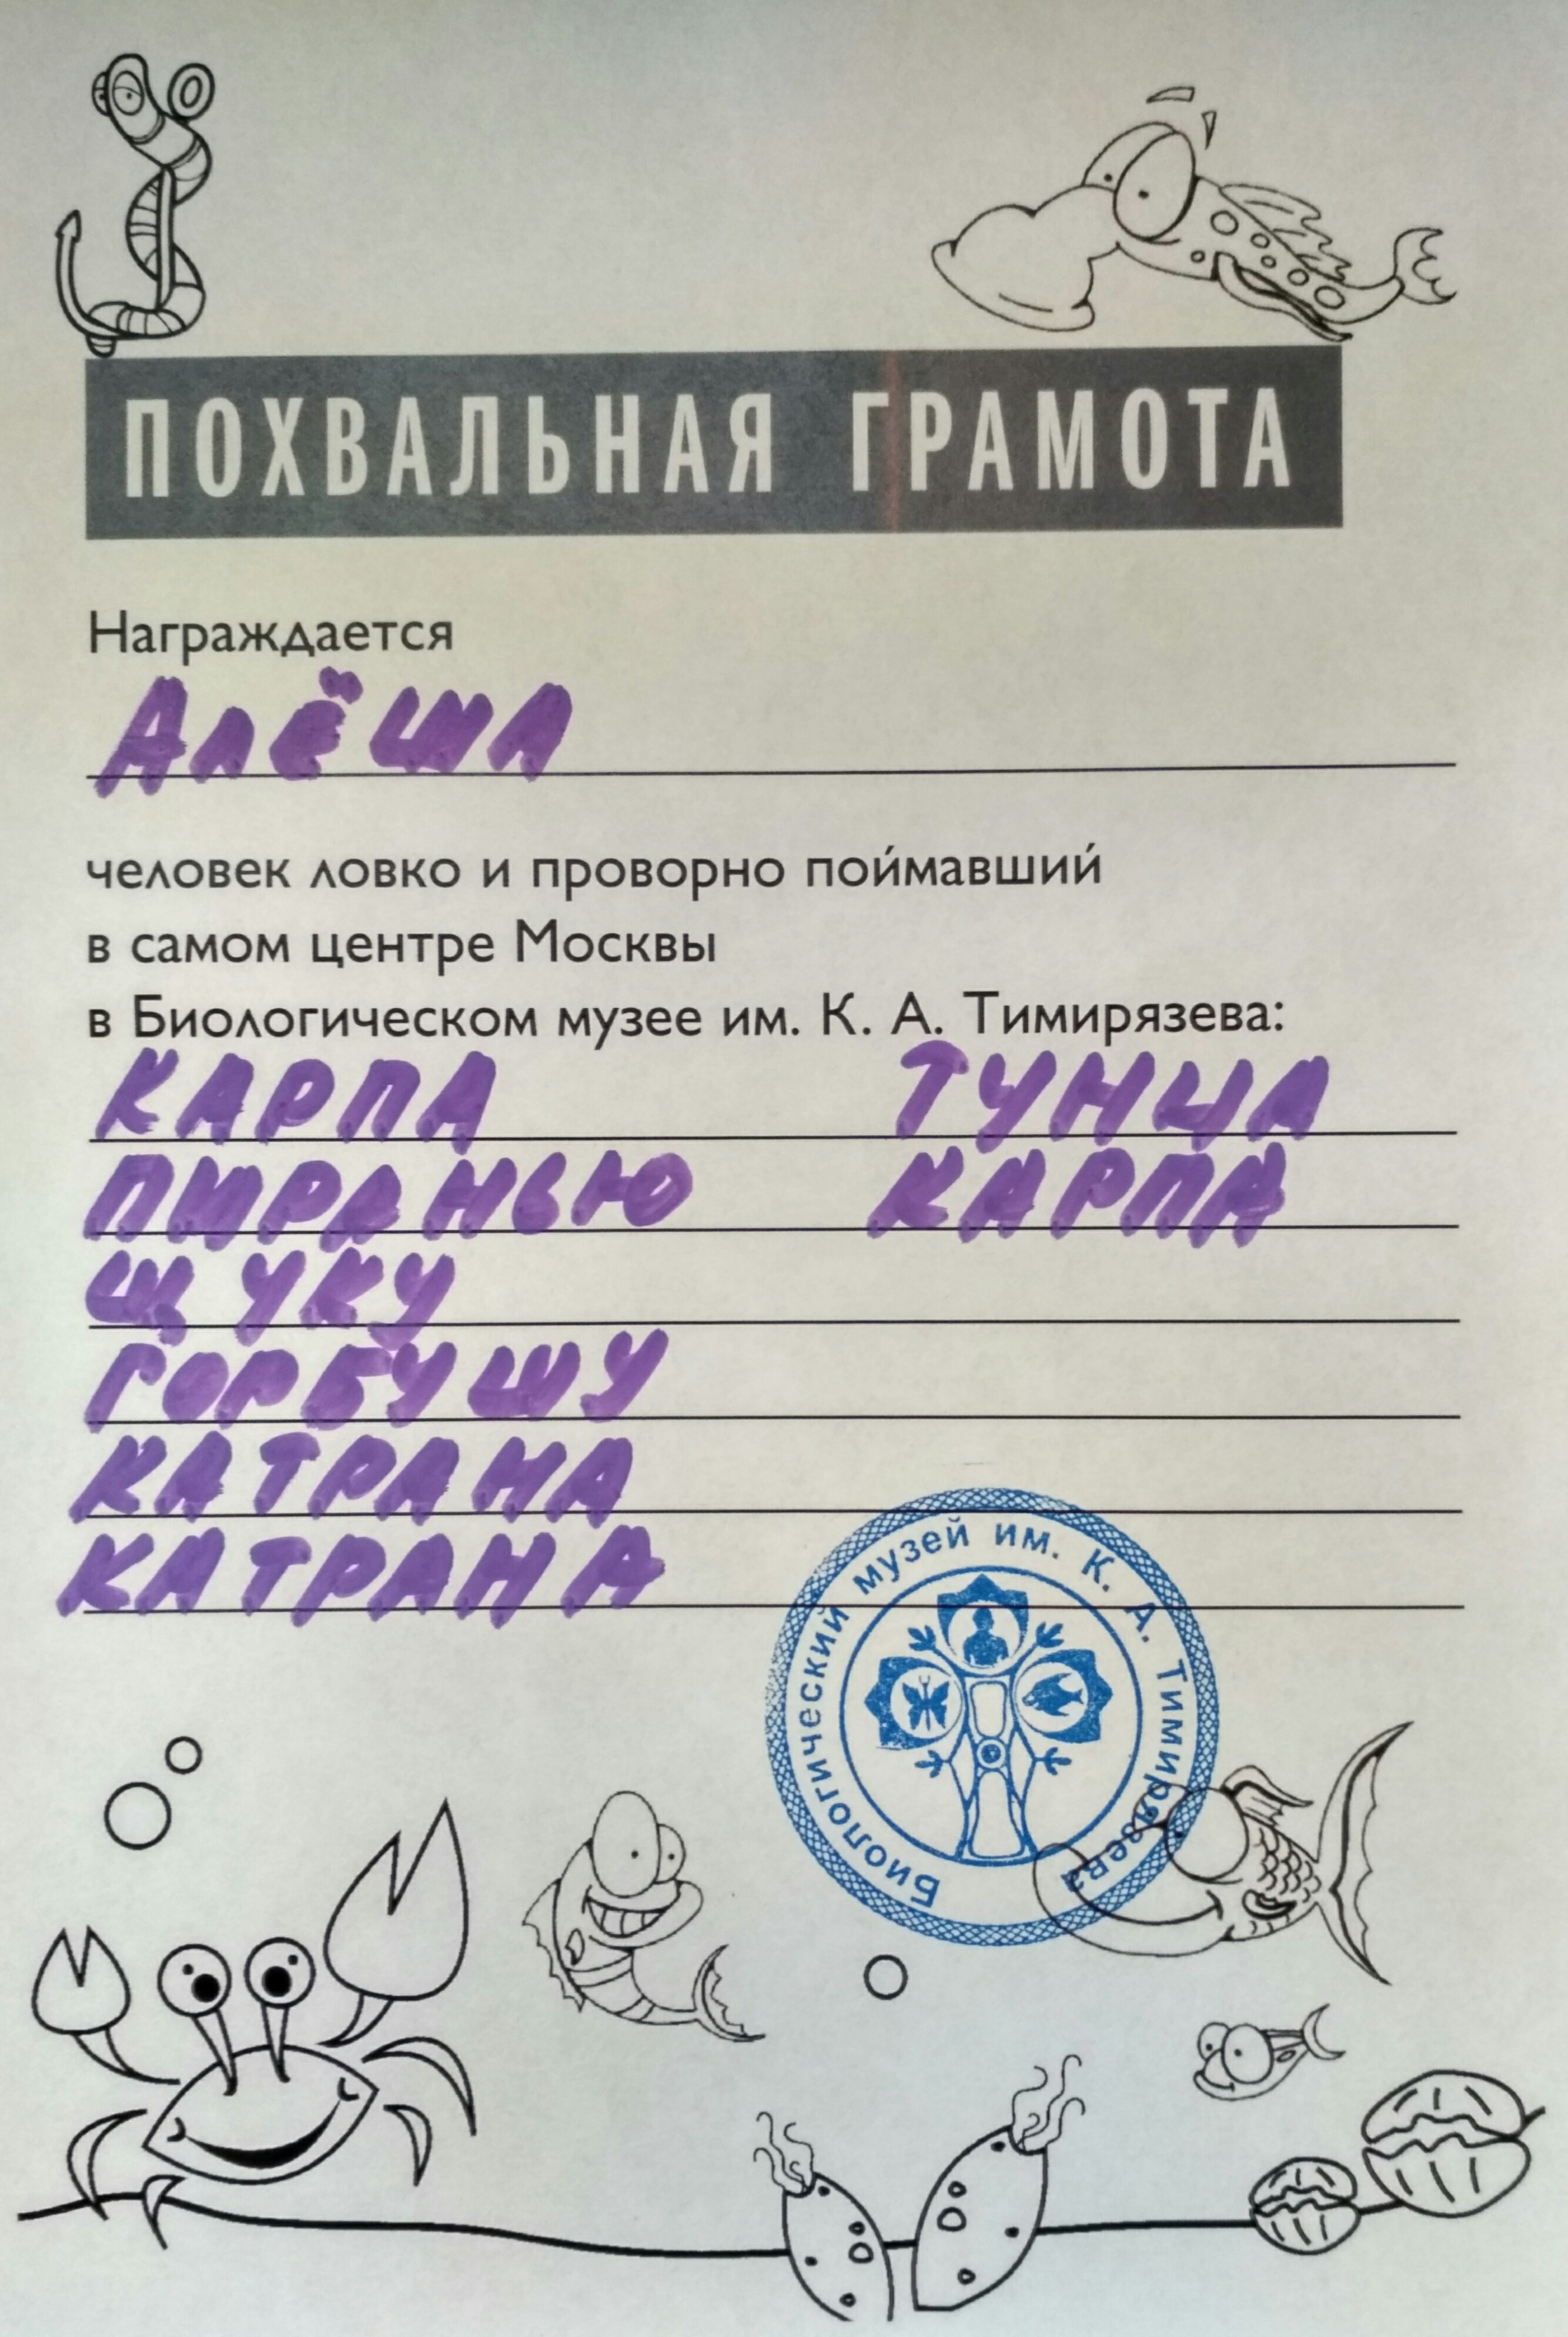 ПОХВАЛЬНАЯ ГРАМОТА
Награждается
АЛЁША
человек ловко и проворно поймавший
в самом центре Москвы
в Биологическом музее им. К. А. Тимирязева:
КАРПА ТУНЦА
ПИРАНЬЮ КАРПА
ЩУКУ
ГОРБУШУ
КАТРАНА
КАТРАНА
Биологический музей им. К. А. Тимирязева